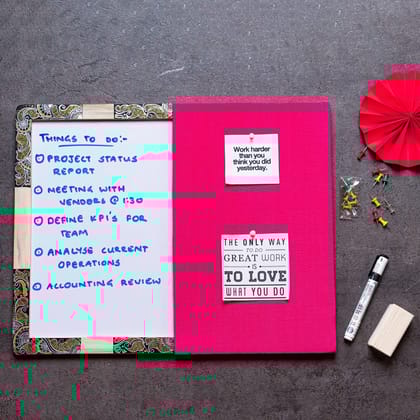 THINGS TO DO:-
PROJECT STATUS
REPORT
MEETING WITH
VENDORS @ 1:30
DEFINE KPI'S FOR
TEAM
ANALYSE CURRENT
OPERATIONS
ACCOUNTING REVIEW
Work harder
than you
think you did
yesterday.
THE ONLY WAY
TO DO
GREAT WORK
IS
TO LOVE
WHAT YOU DO